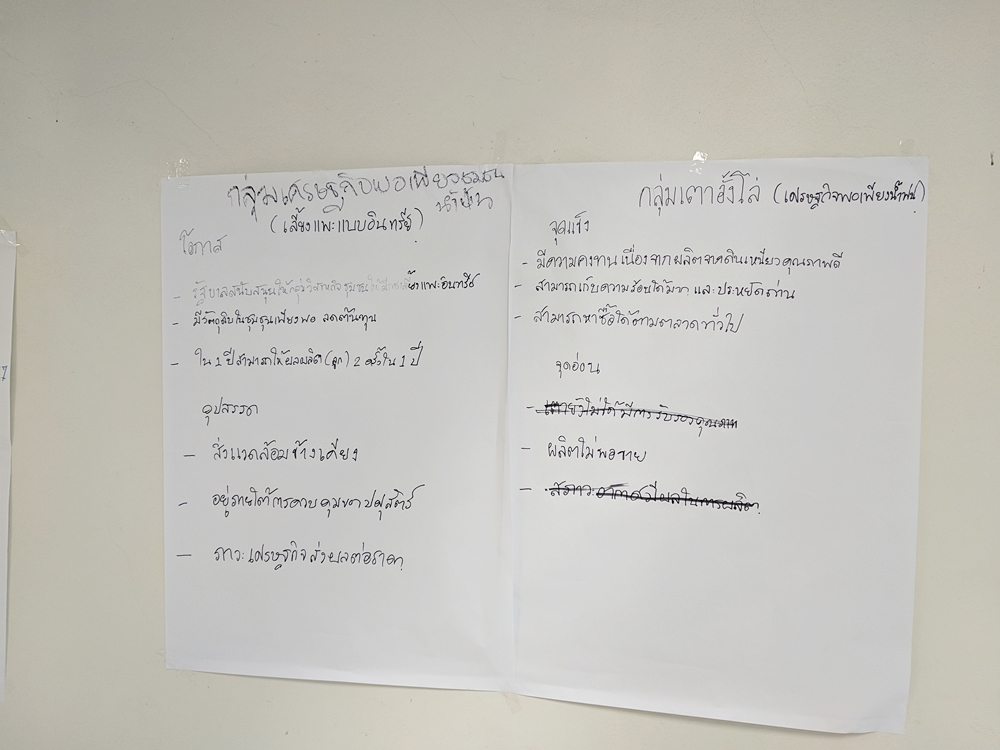 กลุ่มเศรษฐกิจพอเพียงชุมชน
น้ำพุ
(เลี้ยงแพะแบบอินทรีย์)
โอกาส
- รัฐบาลสนับสนุนให้กลุ่มวิสาหกิจชุมชน เลี้ยงแพะอินทรีย์
- มีวัตถุดิบในชุมชนเพียงพอ ลดต้นทุน
- ใน 1 ปี สามารถให้ผลผลิต (ลูก) 2 ครั้งใน 1 ปี
อุปสรรค
- สิ่งแวดล้อมข้างเคียง
- อยู่ภายใต้การควบคุมของปศุสัตว์
- ภาวะเศรษฐกิจส่งผลต่อราคา
กลุ่มเตาอั้งโล่ (เศรษฐกิจพอเพียงน้ำพุ)
จุดแข็ง
- มีความคงทน เนื่องจากผลิตจากดินเหนียวคุณภาพดี
- สามารถเก็บความร้อนได้มาก และประหยัดถ่าน
- สามารถหาซื้อได้ตามตลาดทั่วไป
จุดอ่อน
- เตายังไม่ได้มีการรับรองคุณภาพ
- ผลิตไม่พอขาย
- สภาวะอากาศมีผลในการผลิต